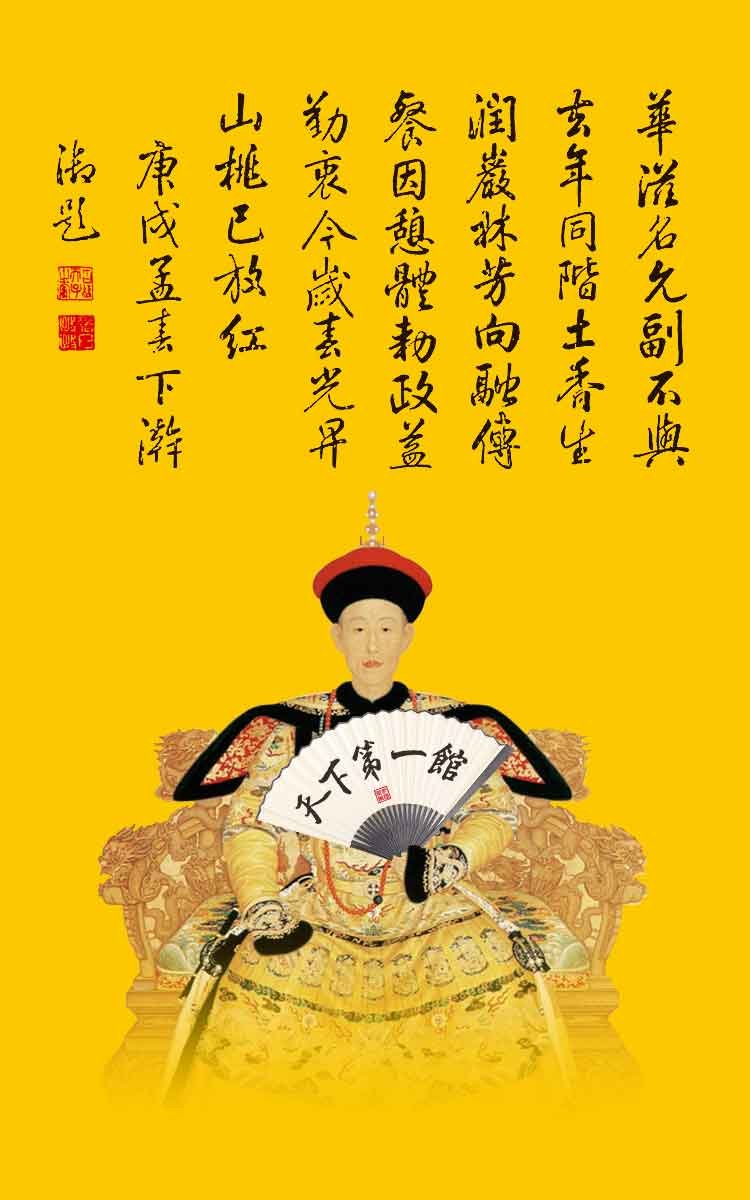 華滋名允副不與
去年同階土香生
潤巖林芳向融傳
餐因憩體勅政益
勤衷今歲春光早
山桃已放紅
庚戌孟春下澣
御題
天下第一館